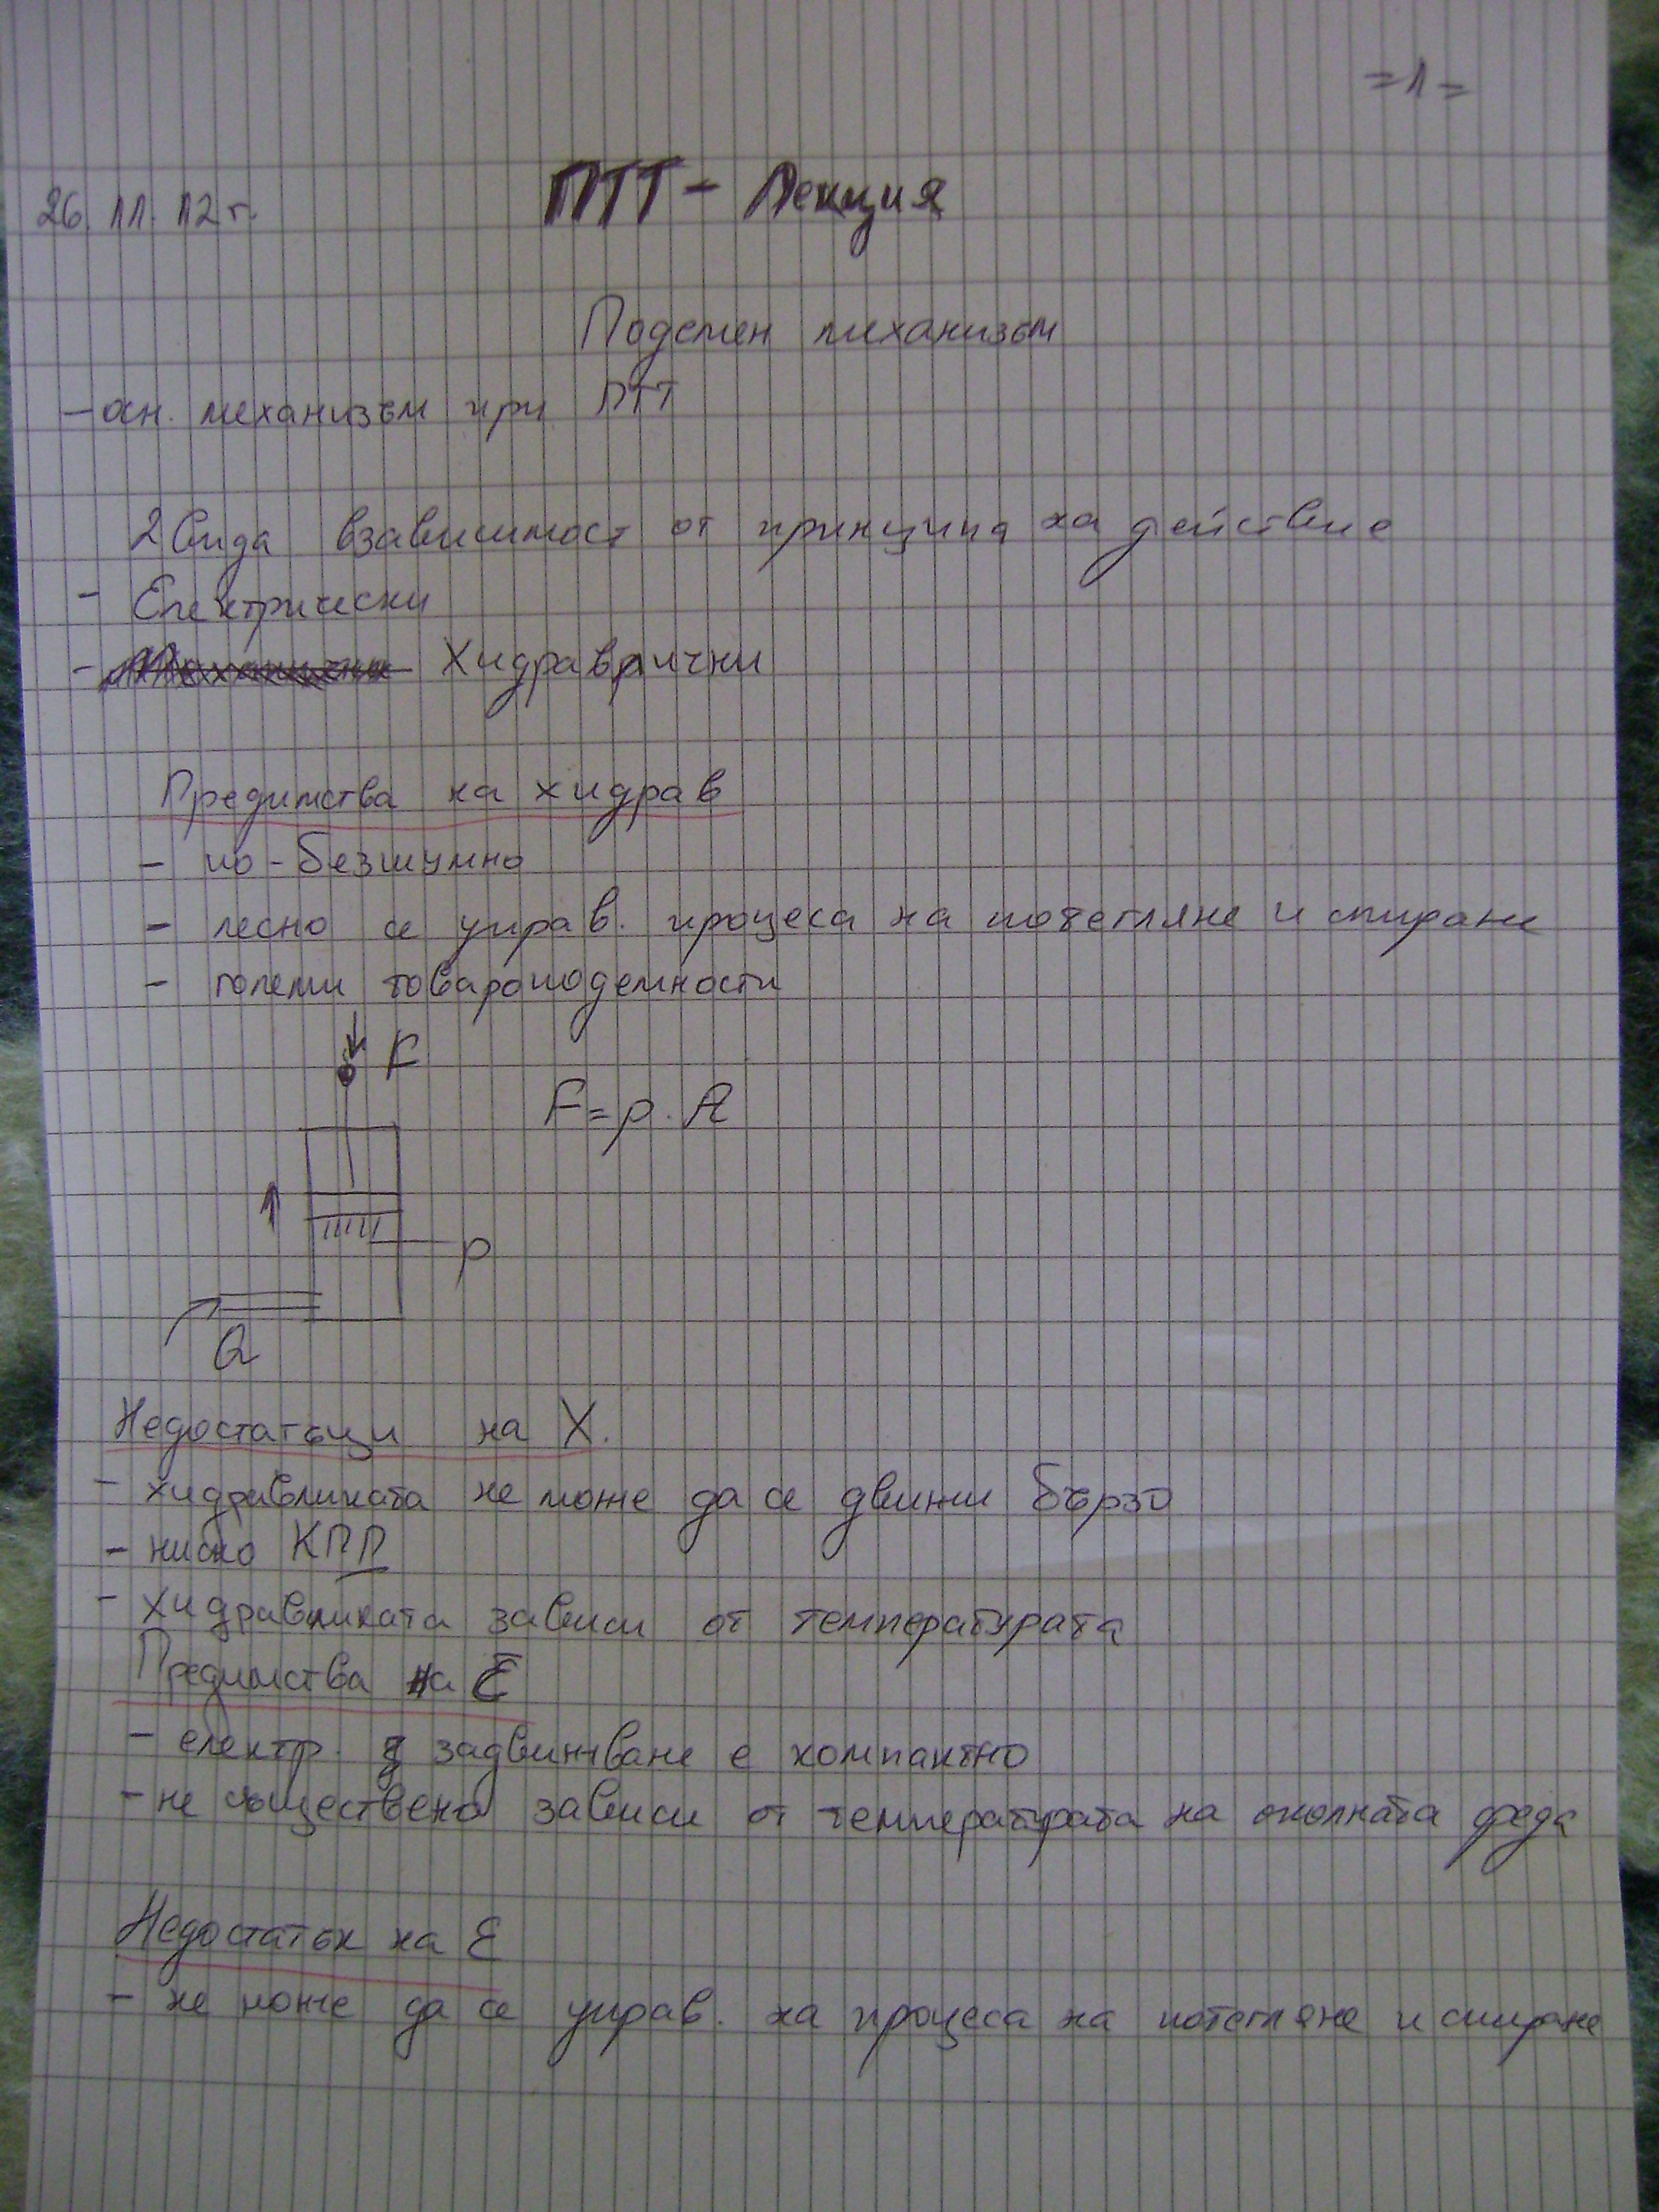 =1=
26.11.12г.
ПТТ - Лекция
Подемен механизъм
- осн. механизъм при ПТТ
2 вида взависимост от принципа на действие
- Електрически
- Хидравлични
Предимства на хидрав
- по-безшумно
- лесно се управ. процеса на потегляне и спиране
- големи товароподемности
F
F = p . A
p
Q
Недостатъци на Х.
- хидравликата не може да се движи бързо
- ниско КПД
- хидравликата зависи от температурата
Предимства на Е
- електр. задвижване е компактно
- не съществено зависи от температурата на околната среда
Недостатък на Е
- не може да се управ. на процеса на потегляне и спиране